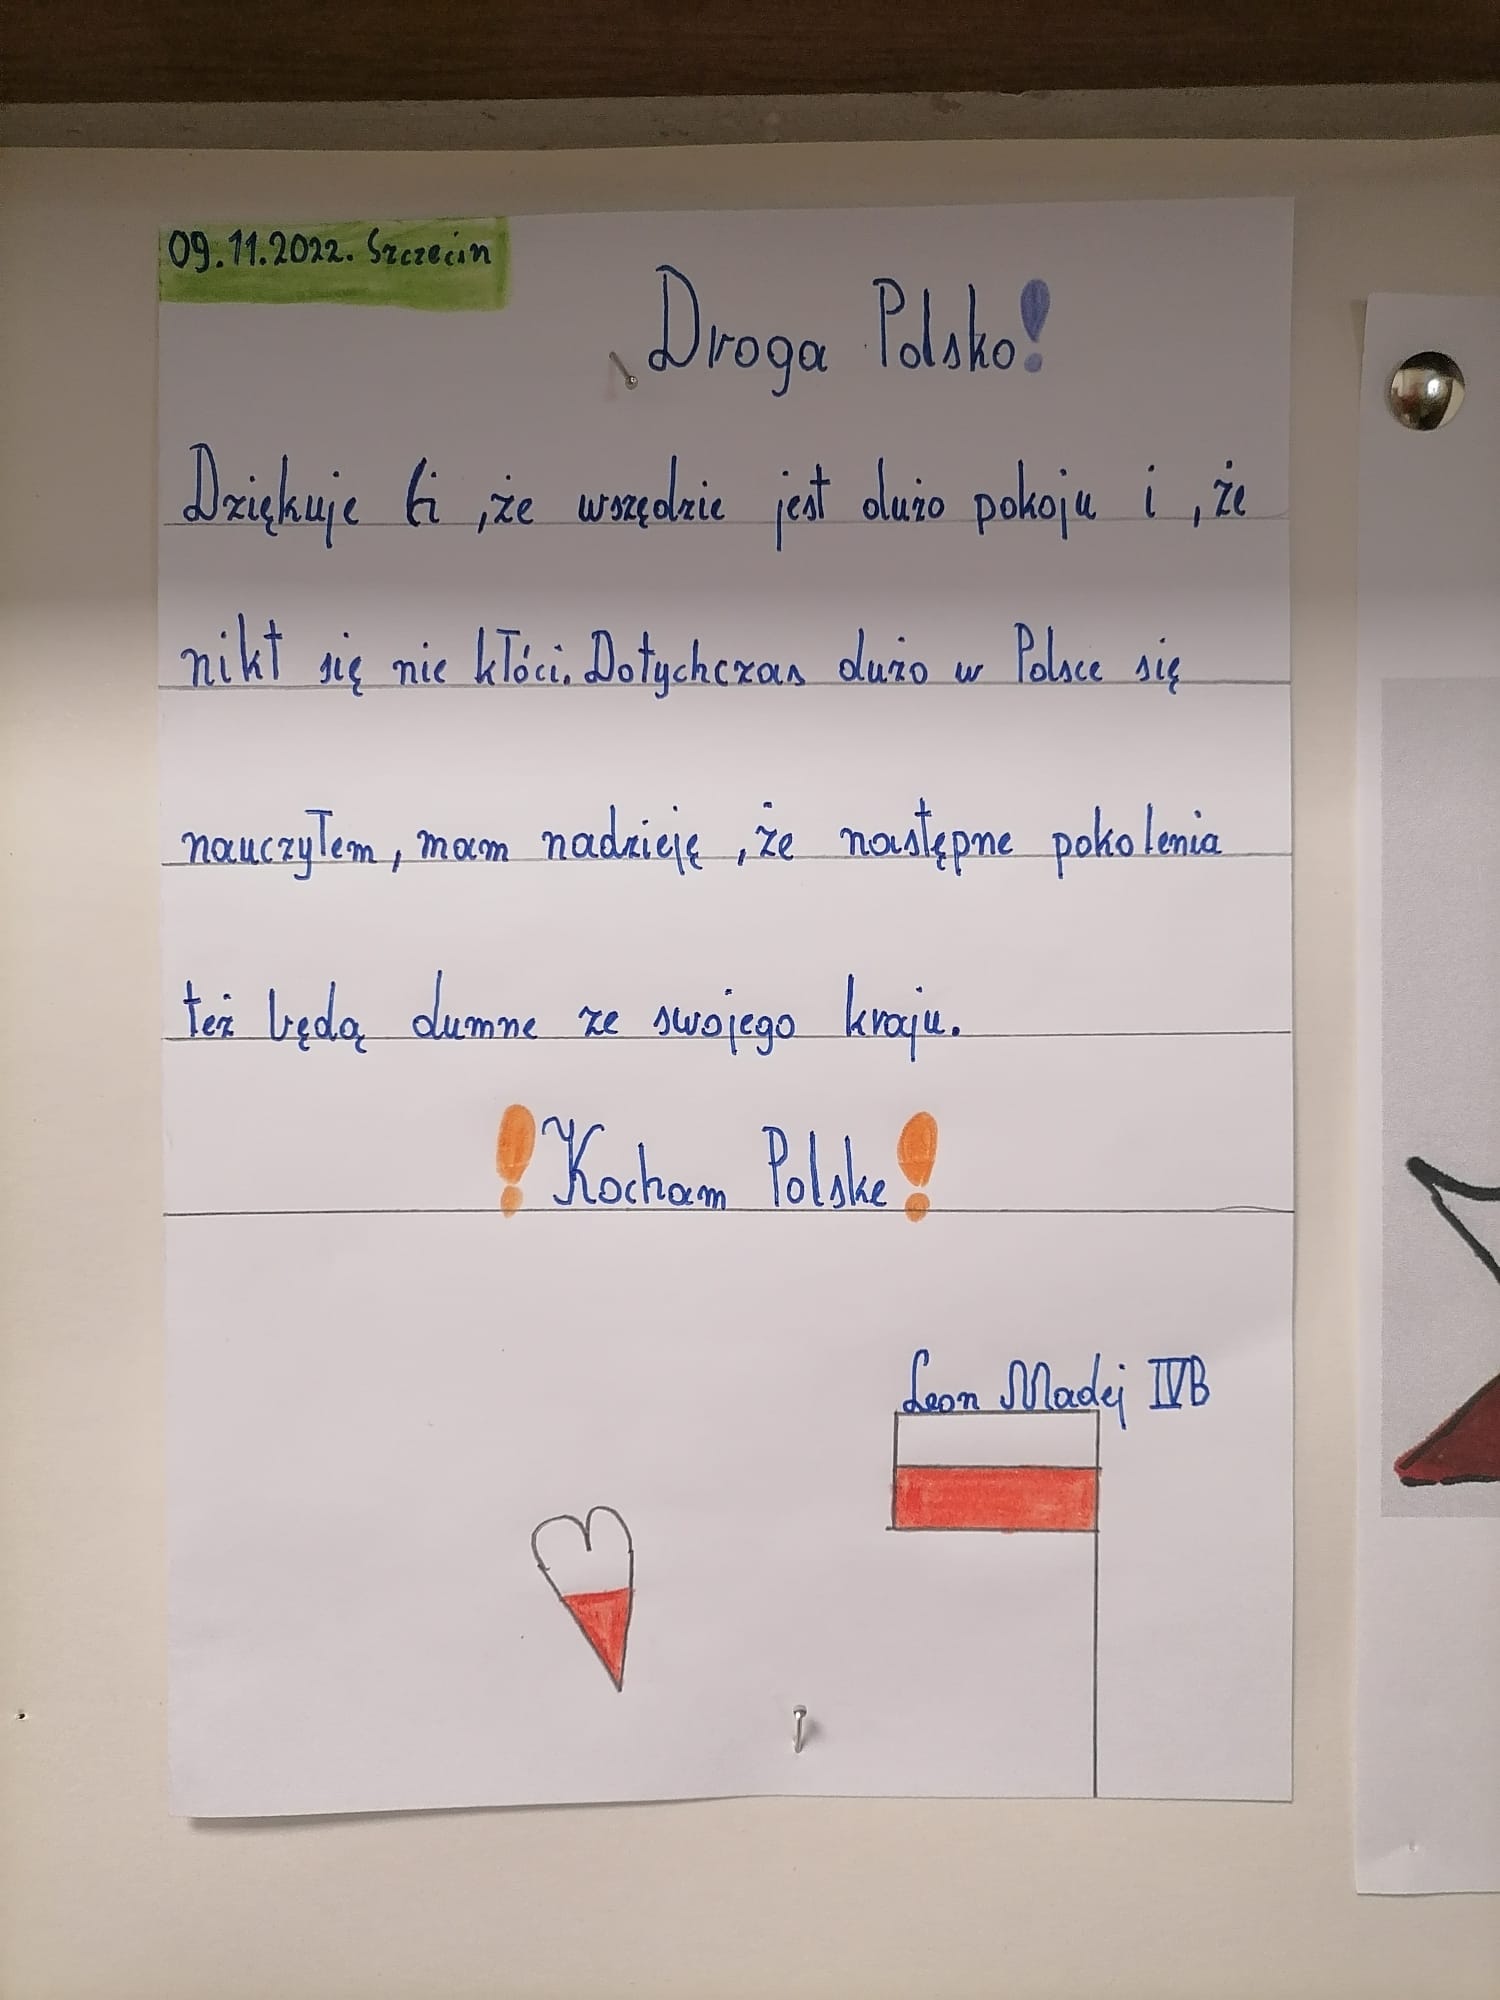 09.11.2022. Szczecin
Droga Polsko!
Dziękuje Ci ,że wszędzie jest dużo pokoju i ,że
nikt się nie kłóci. Dotychczas dużo w Polsce się
nauczyłem, mam nadzieję ,że następne pokolenia
też będą dumne ze swojego kraju.
! Kocham Polske !
Leon Madej IVB